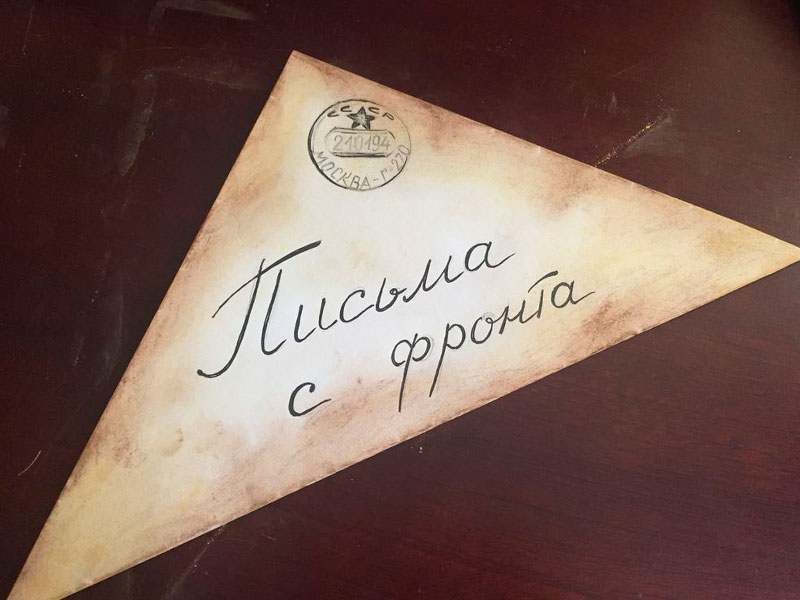 СССР
210194
МОСКВА-Г-270
Письма
с фронта